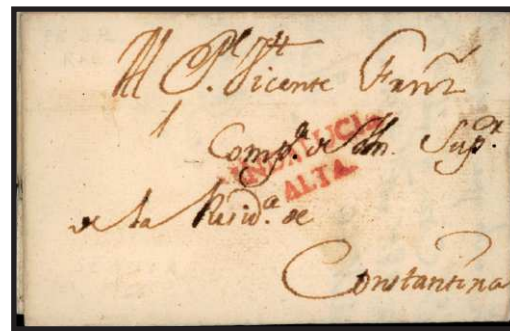 Al P. Vicente
Comp.ª de Jhs. Sup.ʳ
ANDALUCIA
ALTA.
de la Resid.ª de
Constantina